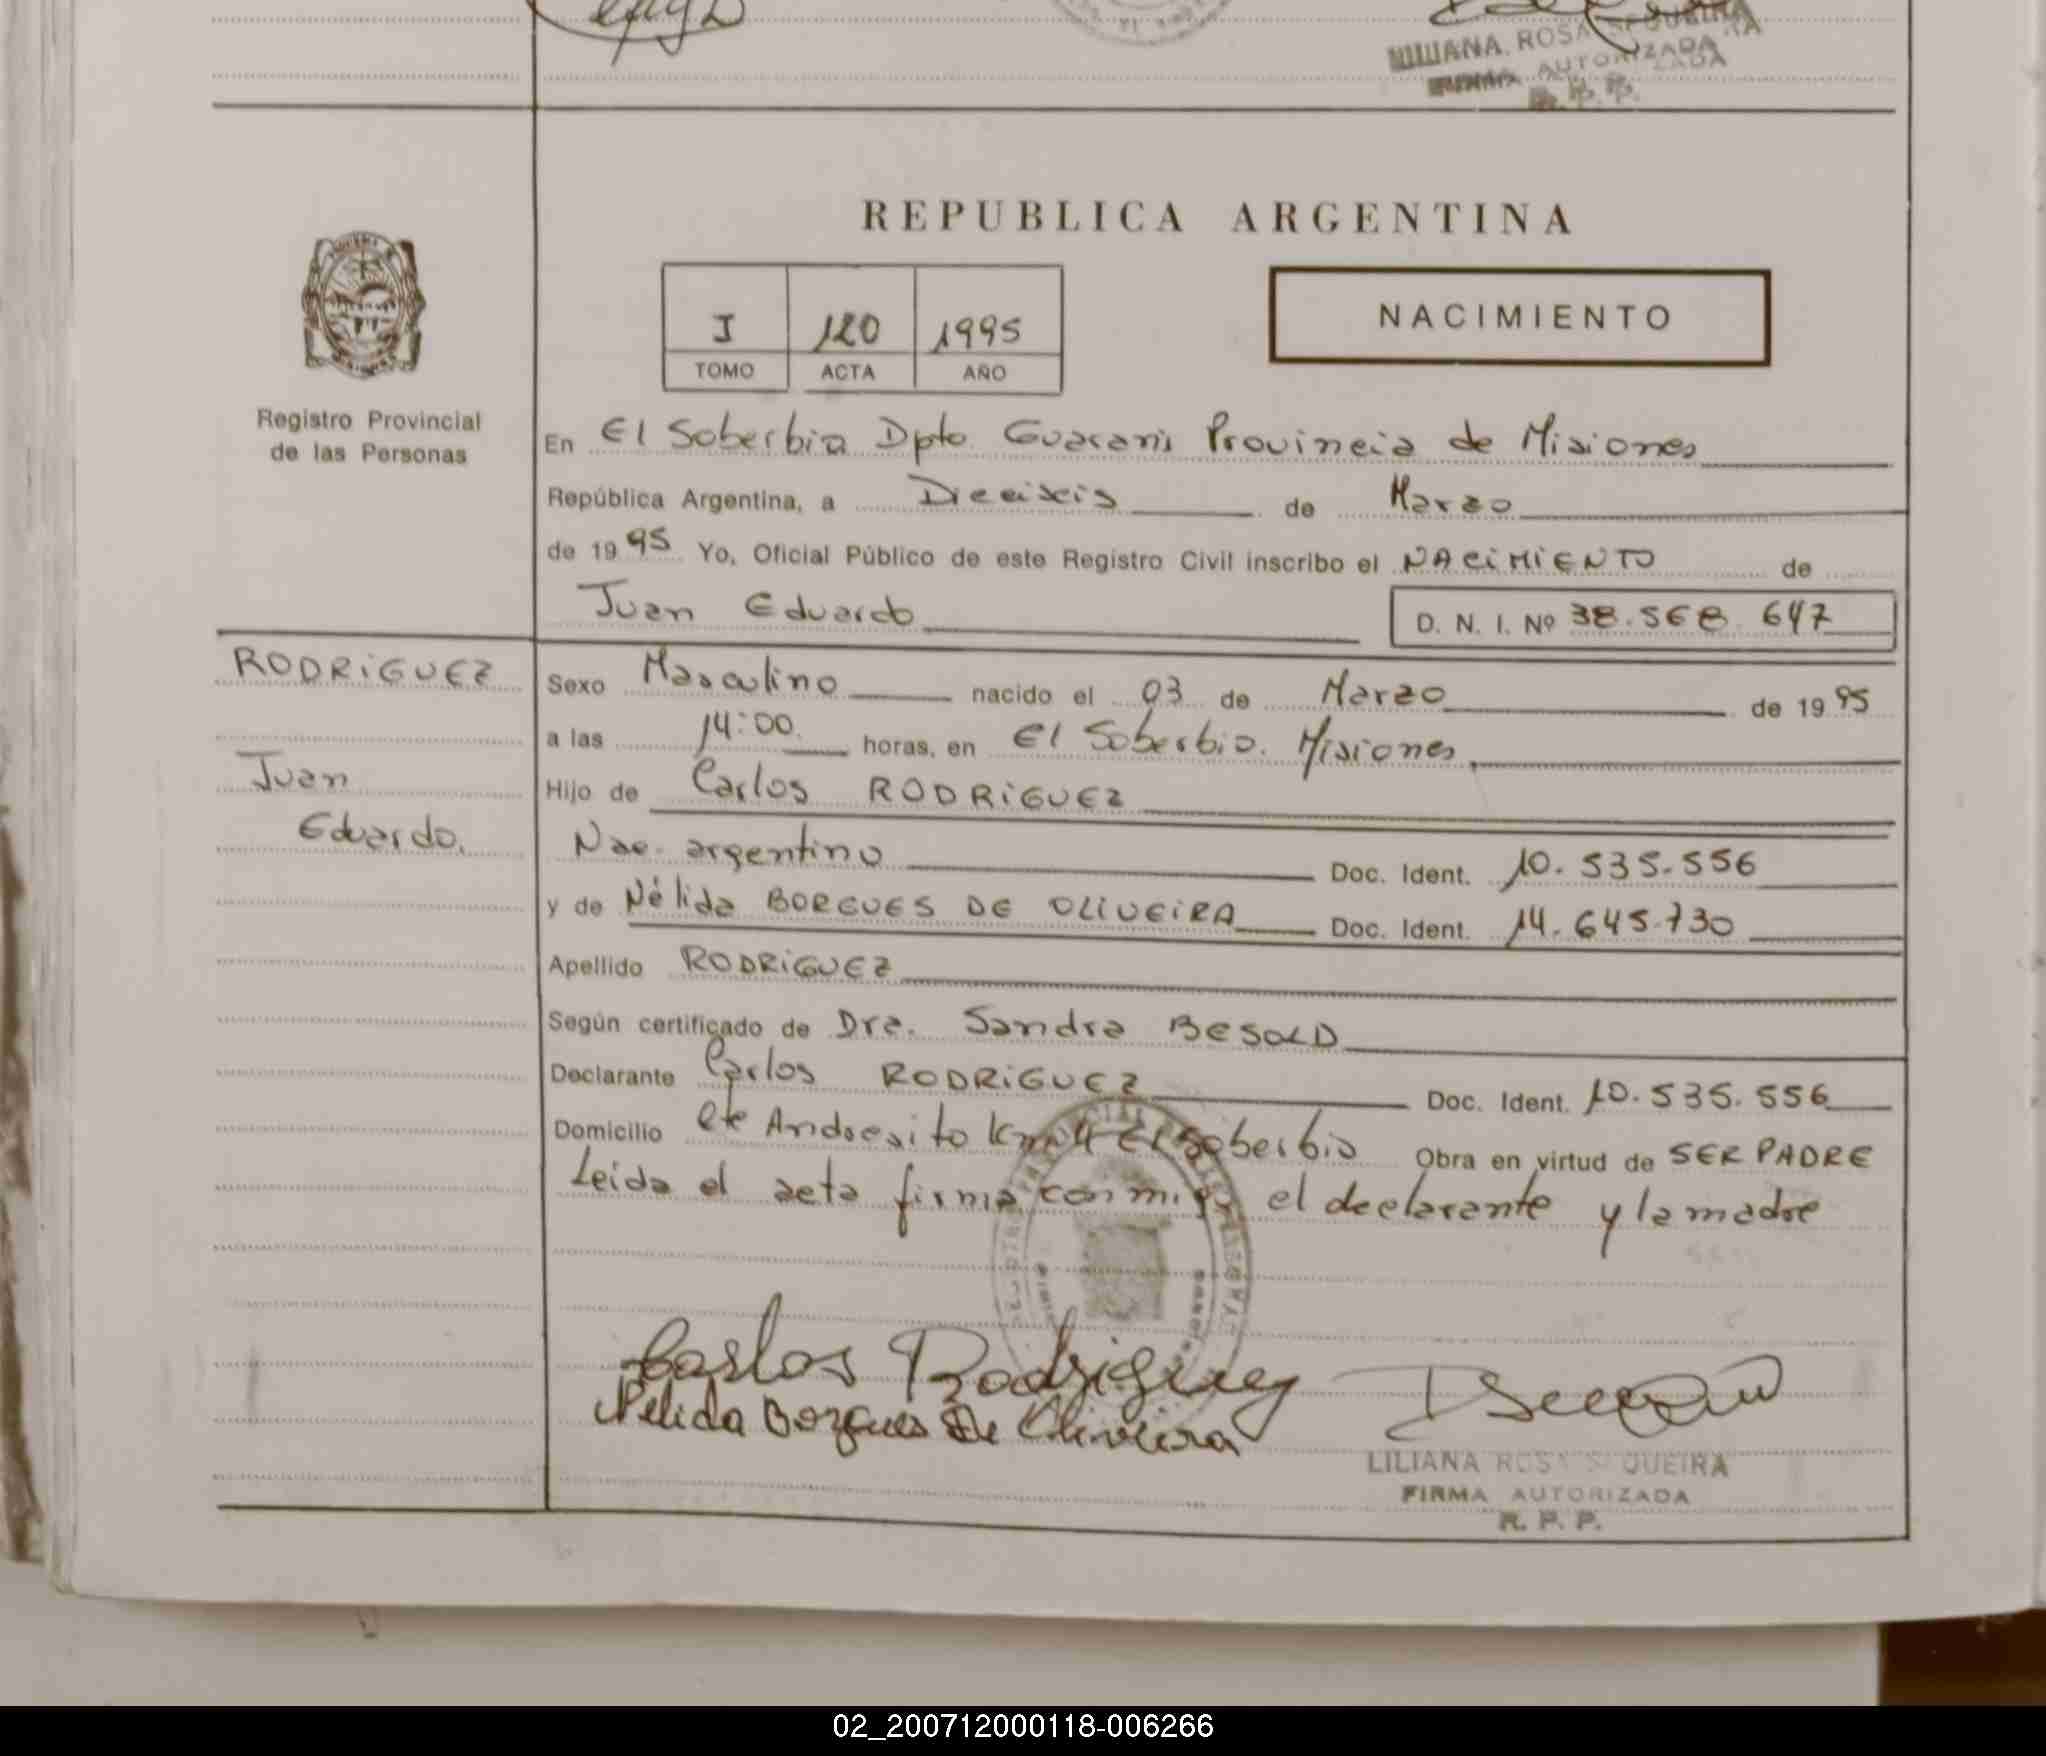 LILIANA ROSA SEQUEIRA
FIRMA AUTORIZADA
R. P. P.
REPUBLICA ARGENTINA
I 120 1995
TOMO ACTA AÑO
NACIMIENTO
Registro Provincial
de las Personas
En El Soberbio Dpto. Guaraní Provincia de Misiones
República Argentina, a Dieciseis de Marzo
de 1995 Yo, Oficial Público de este Registro Civil inscribo el NACIMIENTO de
Juan Eduardo D. N. I. Nº 38.568.647
RODRIGUEZ
Juan
Eduardo.
Sexo Masculino nacido el 03 de Marzo de 1995
a las 14:00. horas, en El Soberbio. Misiones
Hijo de Carlos RODRIGUEZ
Nac. argentino Doc. Ident. 10.535.556
y de Nélida BORGUES DE OLIVEIRA Doc. Ident. 14.645.730
Apellido RODRIGUEZ
Según certificado de Dra. Sandra BESOLD
Declarante Carlos RODRIGUEZ Doc. Ident. 10.535.556
Domicilio Andresito Km 4 El Soberbio Obra en virtud de SER PADRE
Leida el acta firma conmigo el declarante y la madre
Carlos Rodriguez
Nelida Borgues De Oliveira
LILIANA ROSA SEQUEIRA
FIRMA AUTORIZADA
R. P. P.
02_200712000118-006266